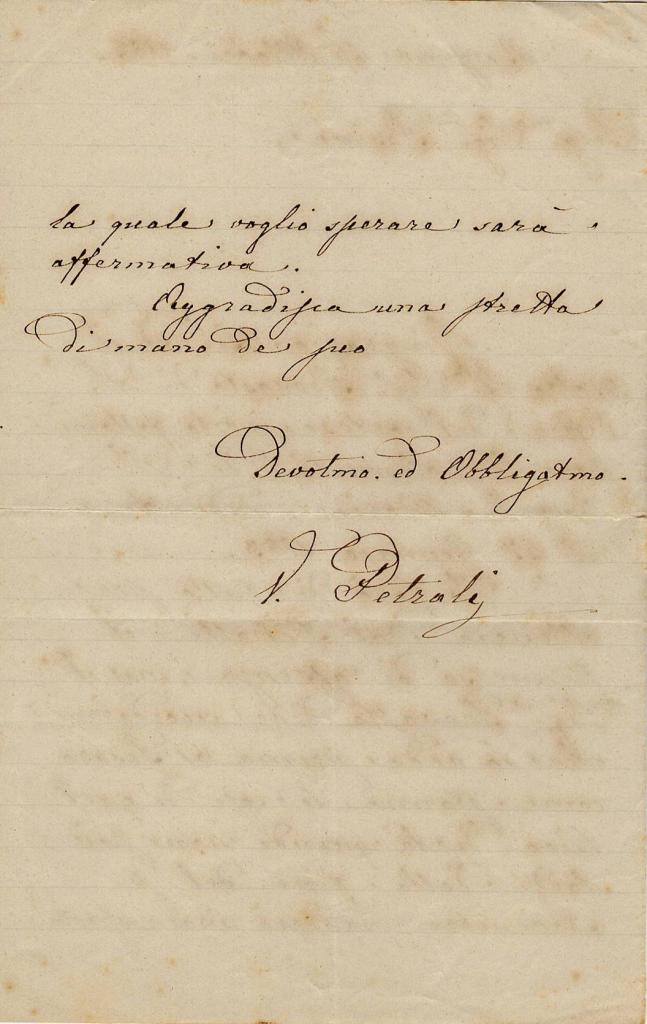 la quale voglio sperare sarà
affermativa.
Aggradisca una stretta
di mano de suo
Devotmo. ed Obbligatmo.
V. Petrali